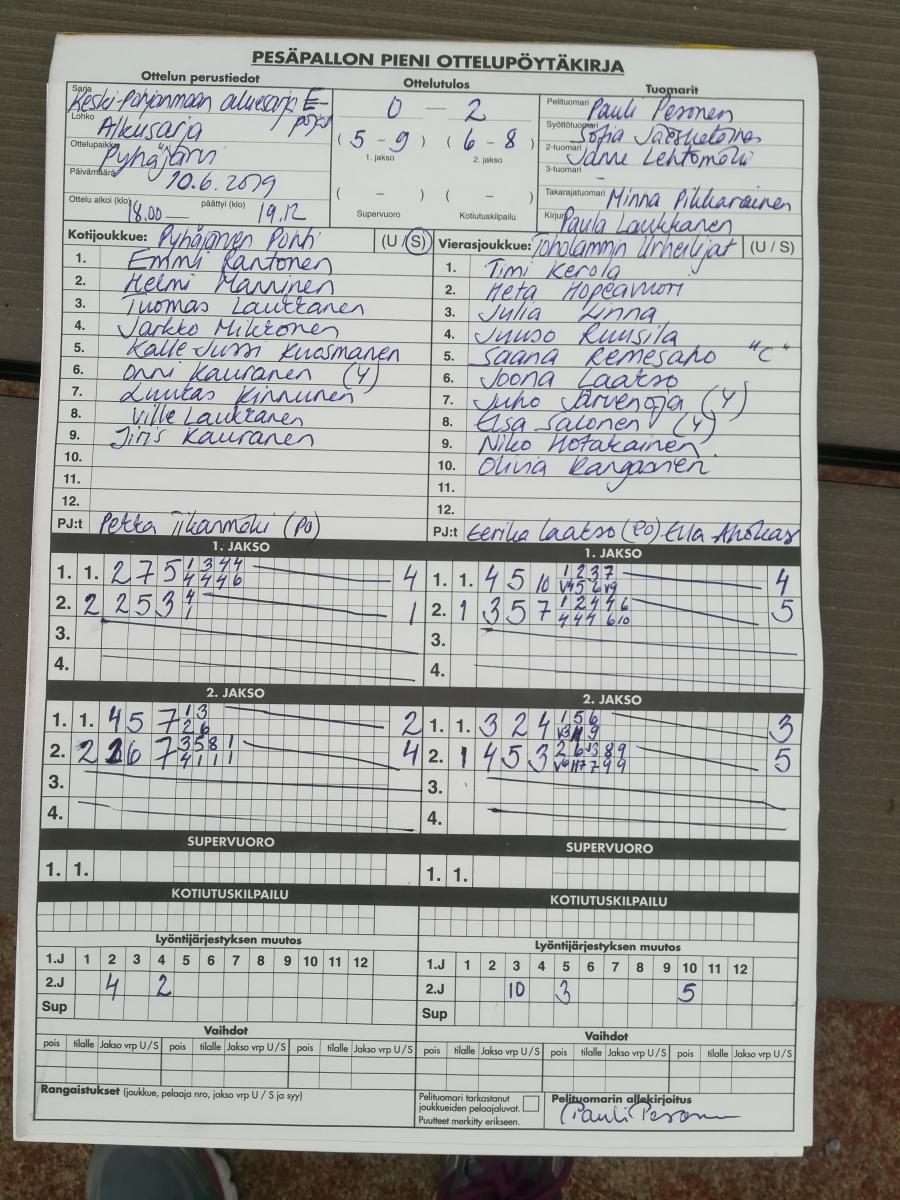 PESÄPALLON PIENI OTTELUPÖYTÄKIRJA
Ottelun perustiedot
Ottelutulos
Tuomarit
Sarja Keski-Pohjanmaan aluesarja E-pojat
Lohko Alkusarja
Ottelupaikka Pyhäjärvi
Päivämäärä 10.6.2019
Ottelu alkoi (klo) 18.00 — päättyi (klo) 19.12
0 — 2
( 5 - 9 ) ( 6 - 8 )
1. jakso 2. jakso
( - ) ( - )
Supervuoro Kotiutuskilpailu
Pelituomari Pauli Pesonen
Syöttötuomari Sofia
2-tuomari Janne Lehtomäki
3-tuomari -
Takarajatuomari Minna Pikkarainen
Kirjuri Paula Laukkanen
Kotijoukkue: Pyhäjärven Pohti (U / S)
1. Emmi Rantonen
2. Helmi Manninen
3. Tuomas Laukkanen
4. Jarkko Mikkonen
5. Kalle-Jussi Kuosmanen
6. Onni Kauranen (Y)
7. Luukas Kinnunen
8. Ville Laukkanen
9. Jiris Kauranen
10.
11.
12.
PJ:t Pekka Tikanmäki (PO)
Vierasjoukkue: Toholammin Urheilijat (U / S)
1. Timi Kerola
2. Heta Hopeavuori
3. Julia Linna
4. Juuso Ruusila
5. Saana Remesaho "C"
6. Joona Laakso
7. Juho Järvenoja (Y)
8. Elsa Salonen (Y)
9. Niko Hotakainen
10. Olivia Kangasnien
11.
12.
PJ:t Eerika Laakso (PO) Ella Ahokas
1. JAKSO
1. 1. 2 7 5 1 3 4 4 4
4 4 4 6
2. 2 2 5 3 4 1
1
3.
4.
1. JAKSO
1. 1. 4 5 10 1 2 3 7 4
V4 5 6 V9
2. 1 3 5 7 1 2 4 4 6 5
4 4 4 6 10
3.
4.
2. JAKSO
1. 1. 4 5 7 1 3 2
2 6
2. 2 6 7 3 5 8 1 4
4 1 1 1
3.
4.
2. JAKSO
1. 1. 3 2 4 1 5 6 3
2. 1 4 5 3 2 6 V3 8 9 5
3.
4.
SUPERVUORO
1. 1.
SUPERVUORO
1. 1.
KOTIUTUSKILPAILU
KOTIUTUSKILPAILU
Lyöntijärjestyksen muutos
1.J 1 2 3 4 5 6 7 8 9 10 11 12
2.J 4 2
Sup
Lyöntijärjestyksen muutos
1.J 1 2 3 4 5 6 7 8 9 10 11 12
2.J 10 3 5
Sup
Vaihdot
pois tilalle Jakso vrp U / S pois tilalle Jakso vrp U / S pois tilalle Jakso vrp U / S
Vaihdot
pois tilalle Jakso vrp U / S pois tilalle Jakso vrp U / S pois tilalle Jakso vrp U / S
Rangaistukset (joukkue, pelaaja nro, jakso vrp U / S ja syy)
Pelituomari tarkastanut
joukkueiden pelaajaluvat.
Puutteet merkitty erikseen.
Pelituomarin allekirjoitus
Pauli Pesonen